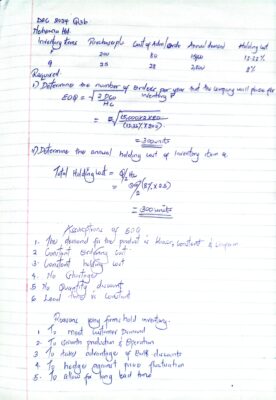 DEC 2024 Q3b
Inventory Items Purchase price Cost of Admin/order Annual demand Holding cost
P 200 80 15000 13.33%
Q 25 28 2500 8%
Required
i) Determine the number of orders per year that the company will place for inventory P
EOQ = √2DCo
Hc
= √15000x2x80
(13.33% x 200)
= 300 units
ii) Determine the annual holding cost of inventory item Q.
Total Holding cost = Q/2 Hc
(8% x 25)
= 300 units
Assumptions of EOQ
1. The demand for the product is known, constant &
2. Constant ordering cost
3. Constant holding cost
4. No shortages
5. No Quantity discount
6. Lead time is Constant
Reasons why firms hold inventory.
1. To meet customer Demand
2. To smooth production & Operation
3. To take advantage of Bulk discounts
4. To hedge against price fluctuation
5. To allow for long lead time